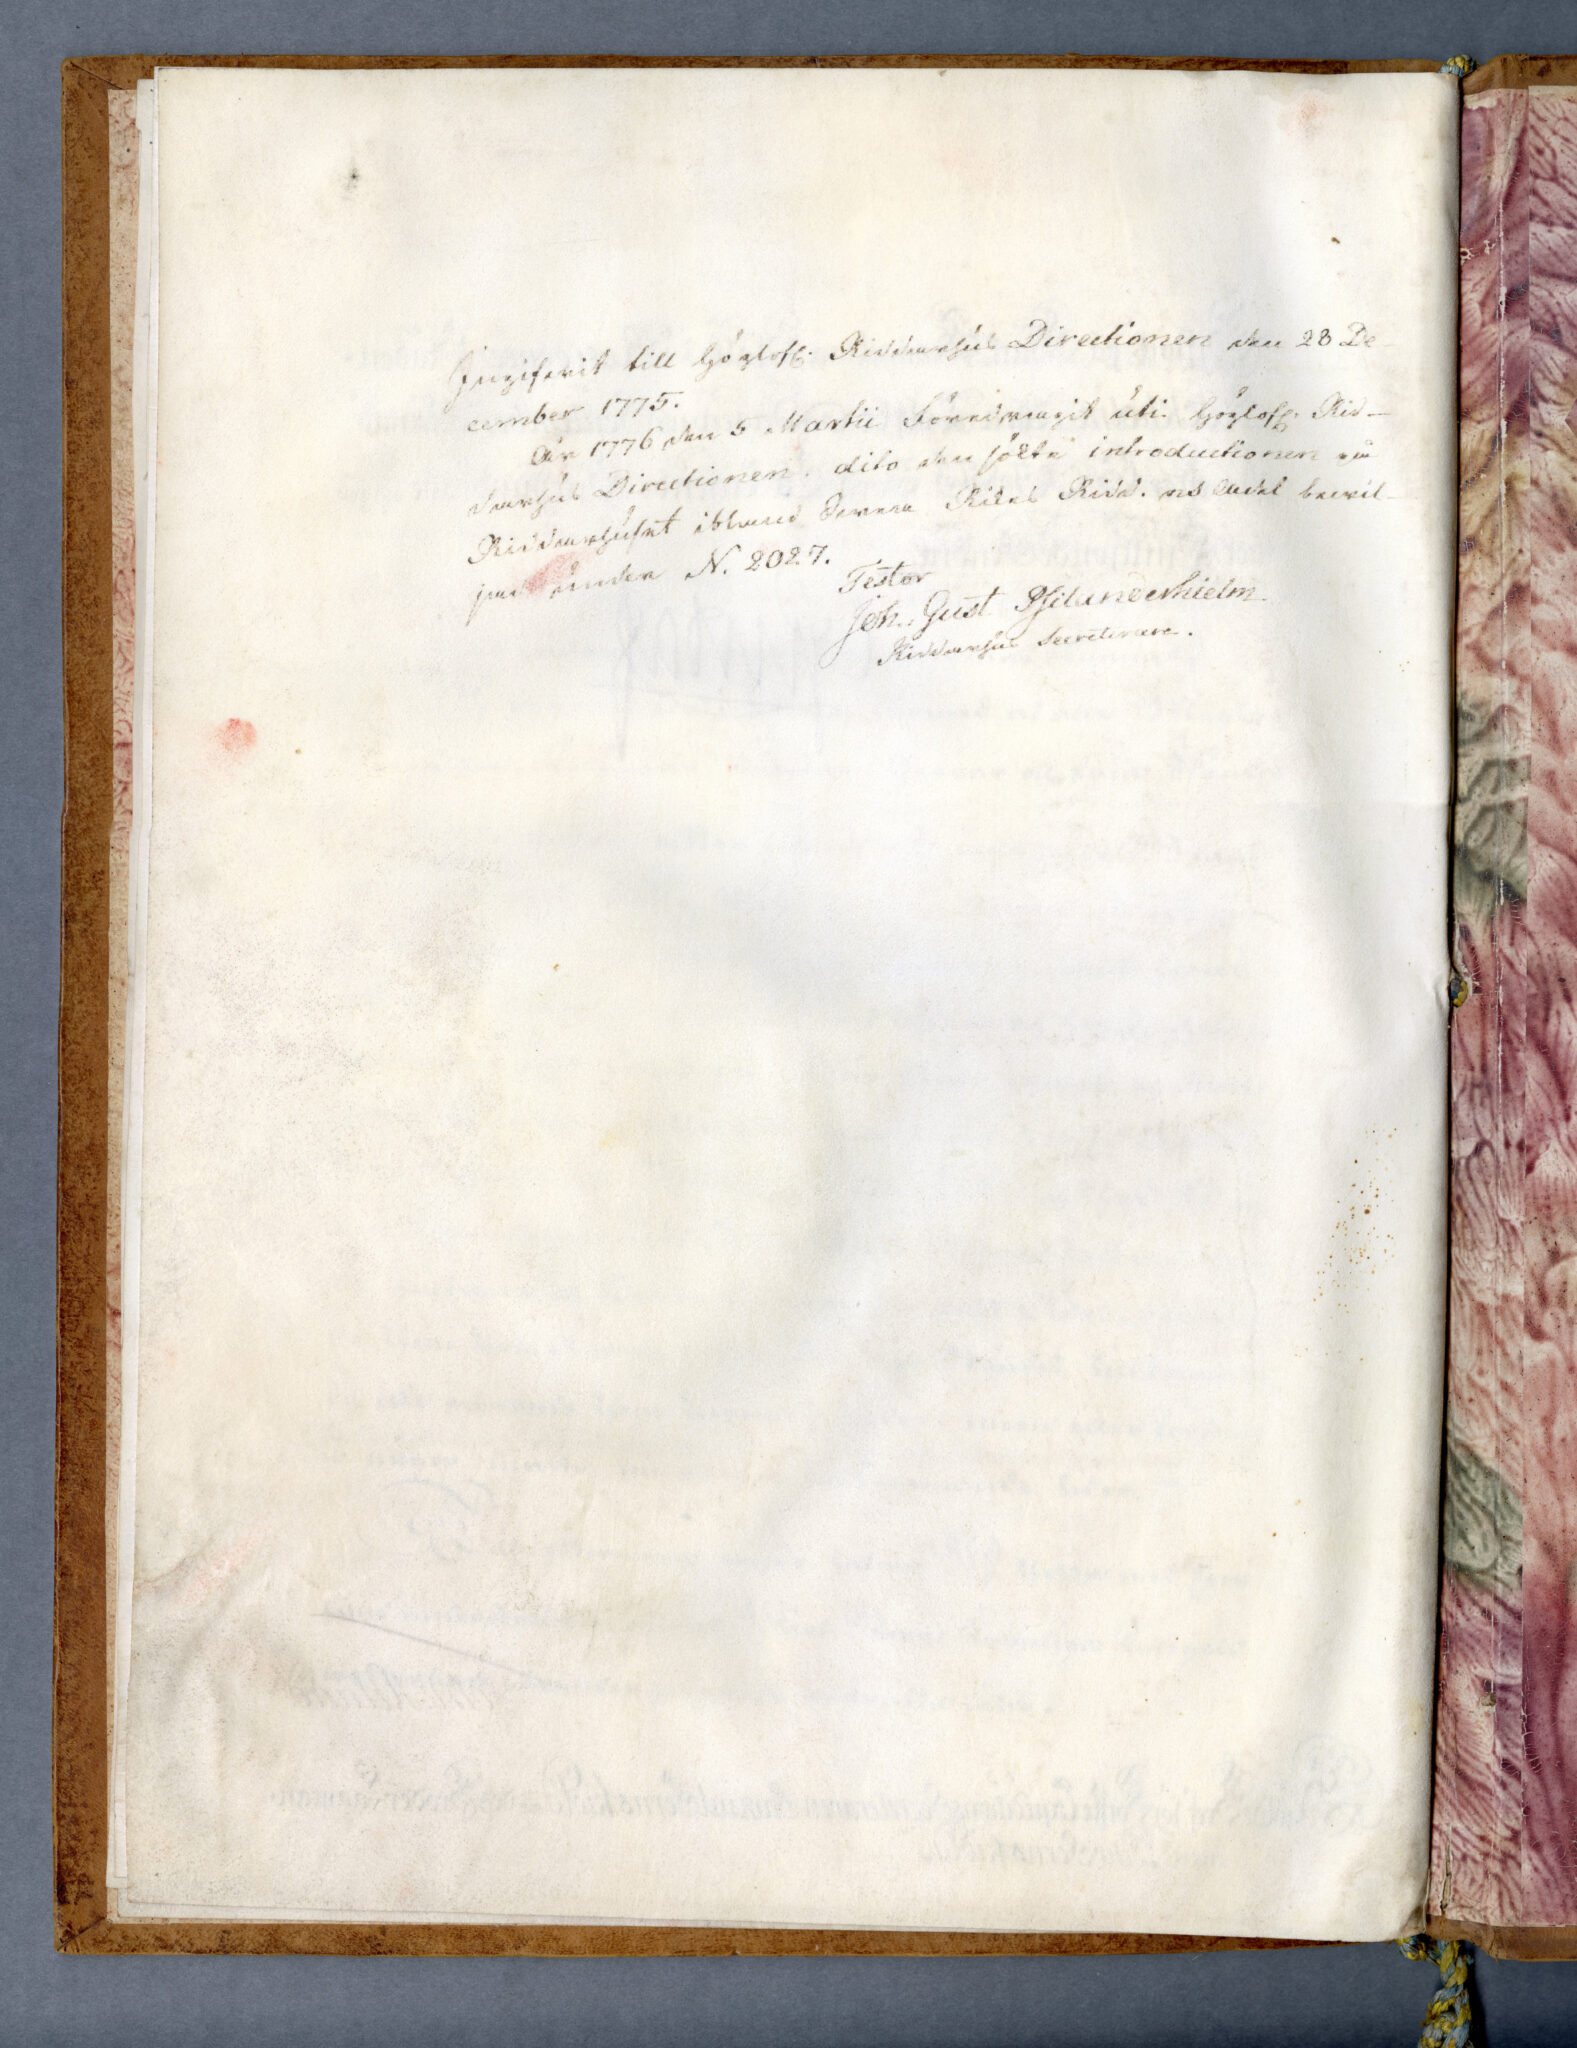 Ingifwit till Höglofl. Riddarhus Directionen den 28 De-
cember 1775.
År 1776 den 5 Martii Föredragit uti Höglofl. Rid-
darhus Directionen. dito den sökta introductionen på
Riddarhuset ibland Swea Rikes Ridd. och Adel bewil-
jad under N. 2027.
Testor
Joh. Gust Psilanderhielm
Riddarhus Secreterare.